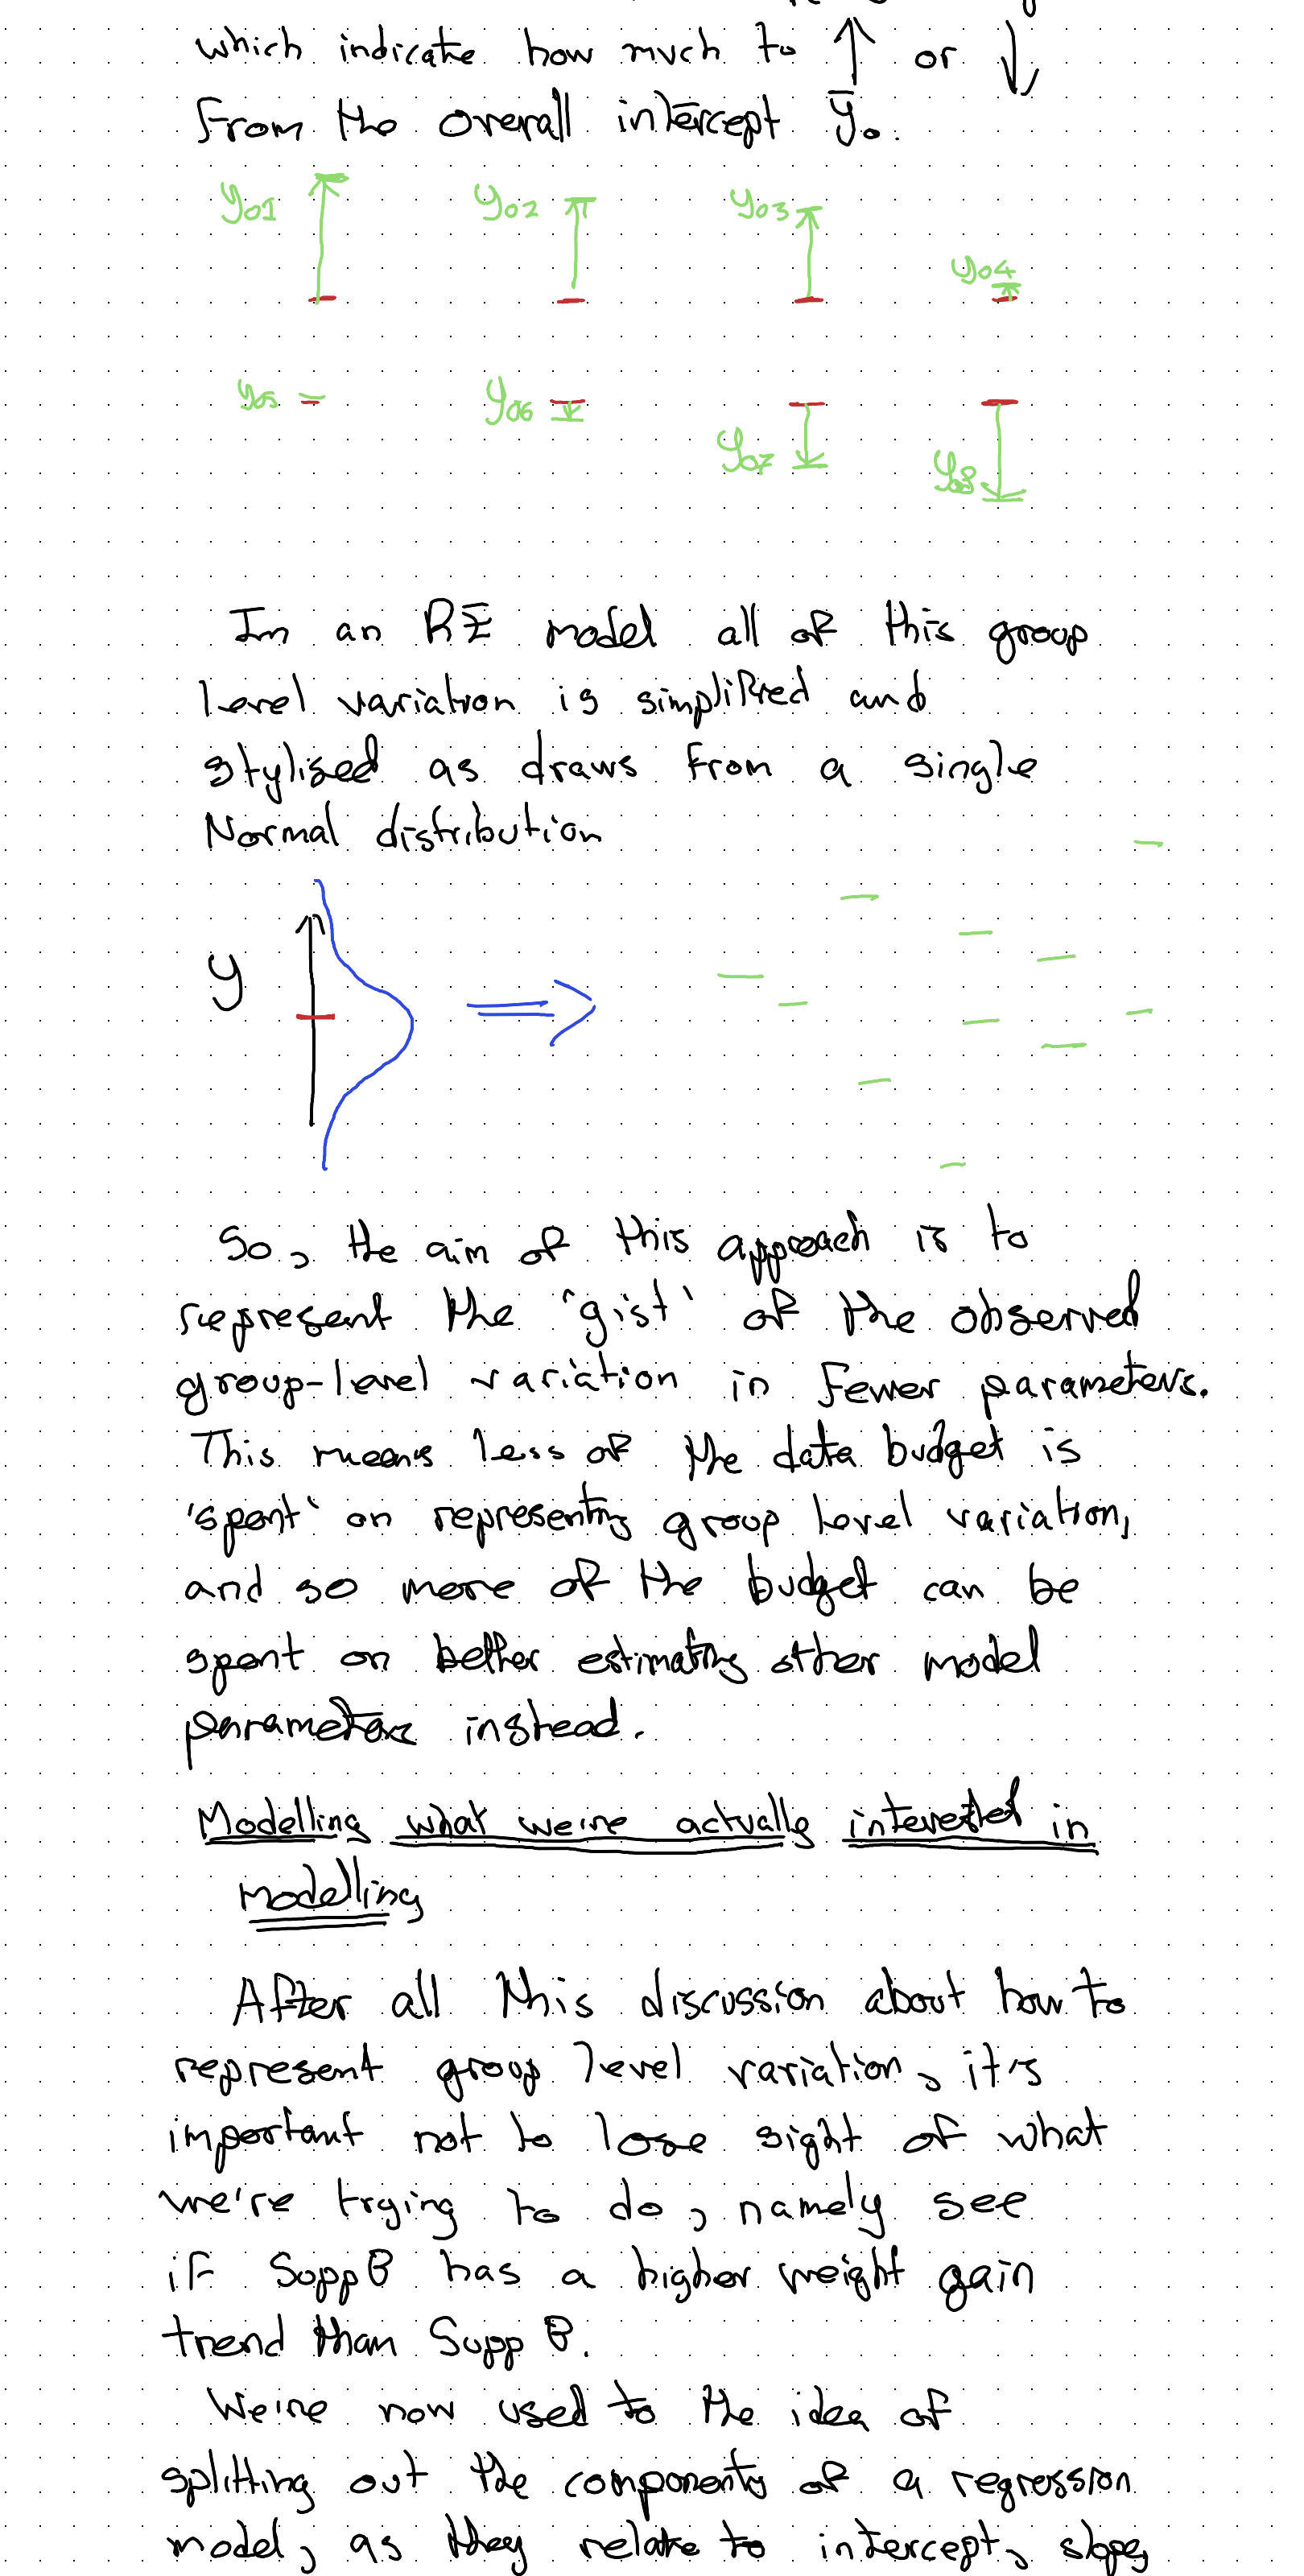 which indicate how much to ↑ or ↓
from the overall intercept ȳ₀.
y01 y02 y03 y04
y05 y06 y07 y08
In an RE model all of this group
level variation is simplified and
stylised as draws from a single
Normal distribution
y
So, the aim of this approach is to
represent the 'gist' of the observed
group-level variation in fewer parameters.
This means less of the data budget is
'spent' on representing group level variation,
and so more of the budget can be
spent on better estimating other model
parameters instead.
Modelling what we're actually interested in
modelling
After all this discussion about how to
represent group level variation, it's
important not to lose sight of what
we're trying to do, namely see
if Supp B has a higher weight gain
trend than Supp B.
We're now used to the idea of
splitting out the components of a regression
model, as they relate to intercept, slope,